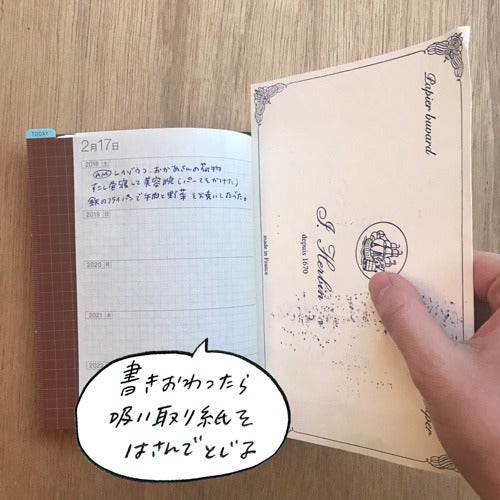 TODAY
2月17日
2018 土
AM レイゾウコ、おかあさんの荷物
すこし昼寝して美容院(パーマをかけた)
鉄のフライパンで牛肉と野菜を
2019 日
2020 月
2021 水
書きおわったら
吸い取り紙を
はさんでとじる
Papier buvard
J. Herbin
depuis 1670
made in France